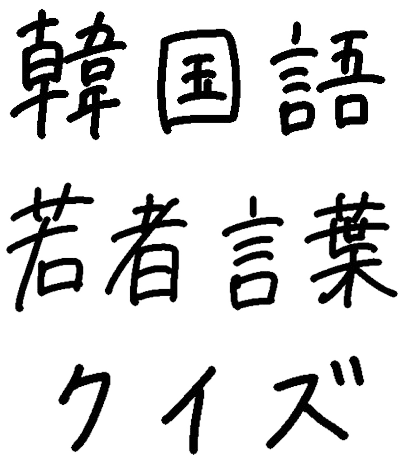 韓国語
若者言葉
クイズ